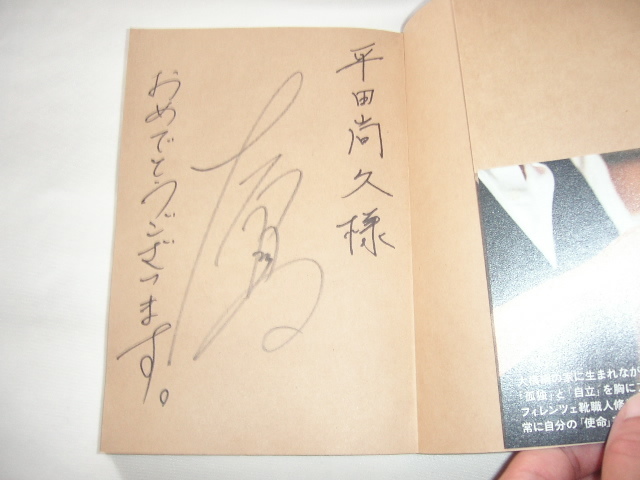 平田尚久様
おめでとうございます。
の家に生まれなが
「孤独」と「自立」を胸に
フィレンツェ靴職人修
常に自分の「使命」